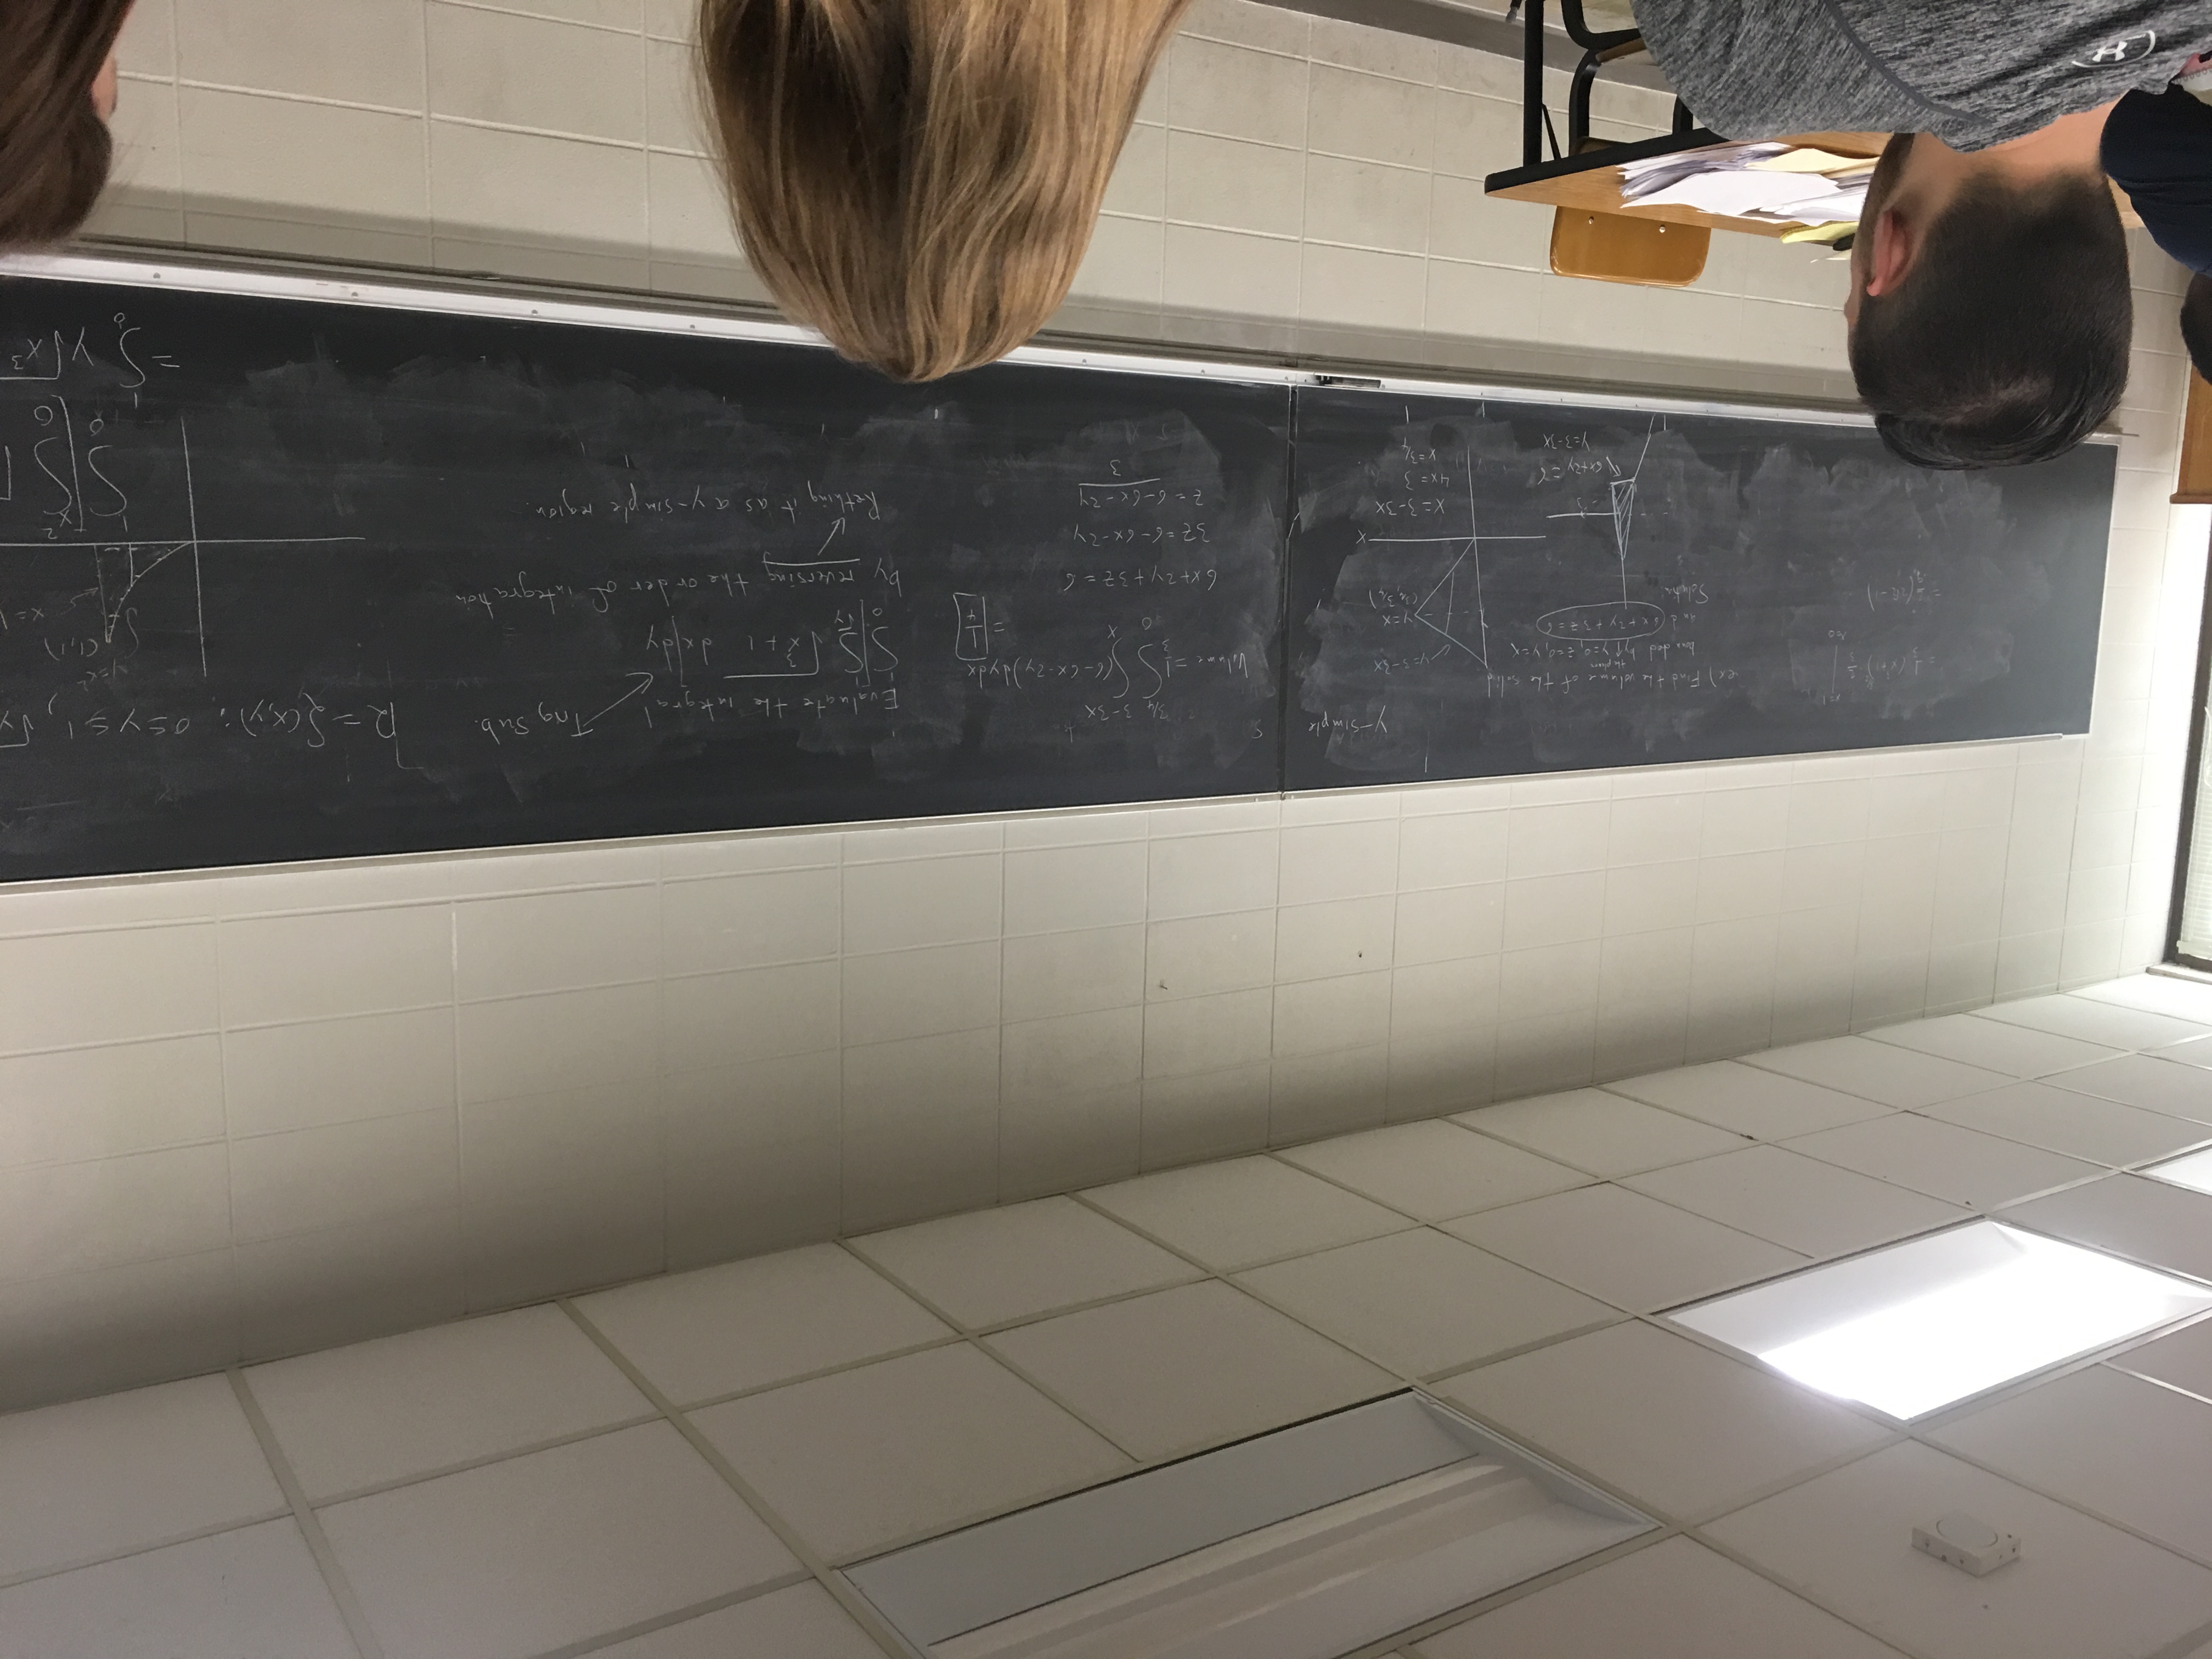 = 1/3 (x³+1)^3/2 · 2/3 |
x=1
x=0
= 2/9 (2√2 - 1)
ex) Find the volume of the solid
bounded by the plane y=0, z=0, y=x
and 6x+2y+3z=6
Solution:
6x+2y=6
y=3-3x
y-simple
y=3-3x
y=x
(3/4, 3/4)
x
x=3-3x
4x=3
x=3/4
Volume = 1/3 ∫_0^{3/4} ∫_x^{3-3x} (6-6x-2y) dy dx
= 1/4
6x+2y+3z=6
3z=6-6x-2y
z=6-6x-2y / 3
Evaluate the integral
Trig sub.
∫_0^1 ∫_√y^1 √x³+1 dx dy
by reversing the order of integration
Rething it as a y-simple region.
R = {(x,y): 0≤y≤1, √y
y=x²
(1,1)
x=1
∫_0^1 ∫_0^{x²} √
= ∫_0^1 y√x³